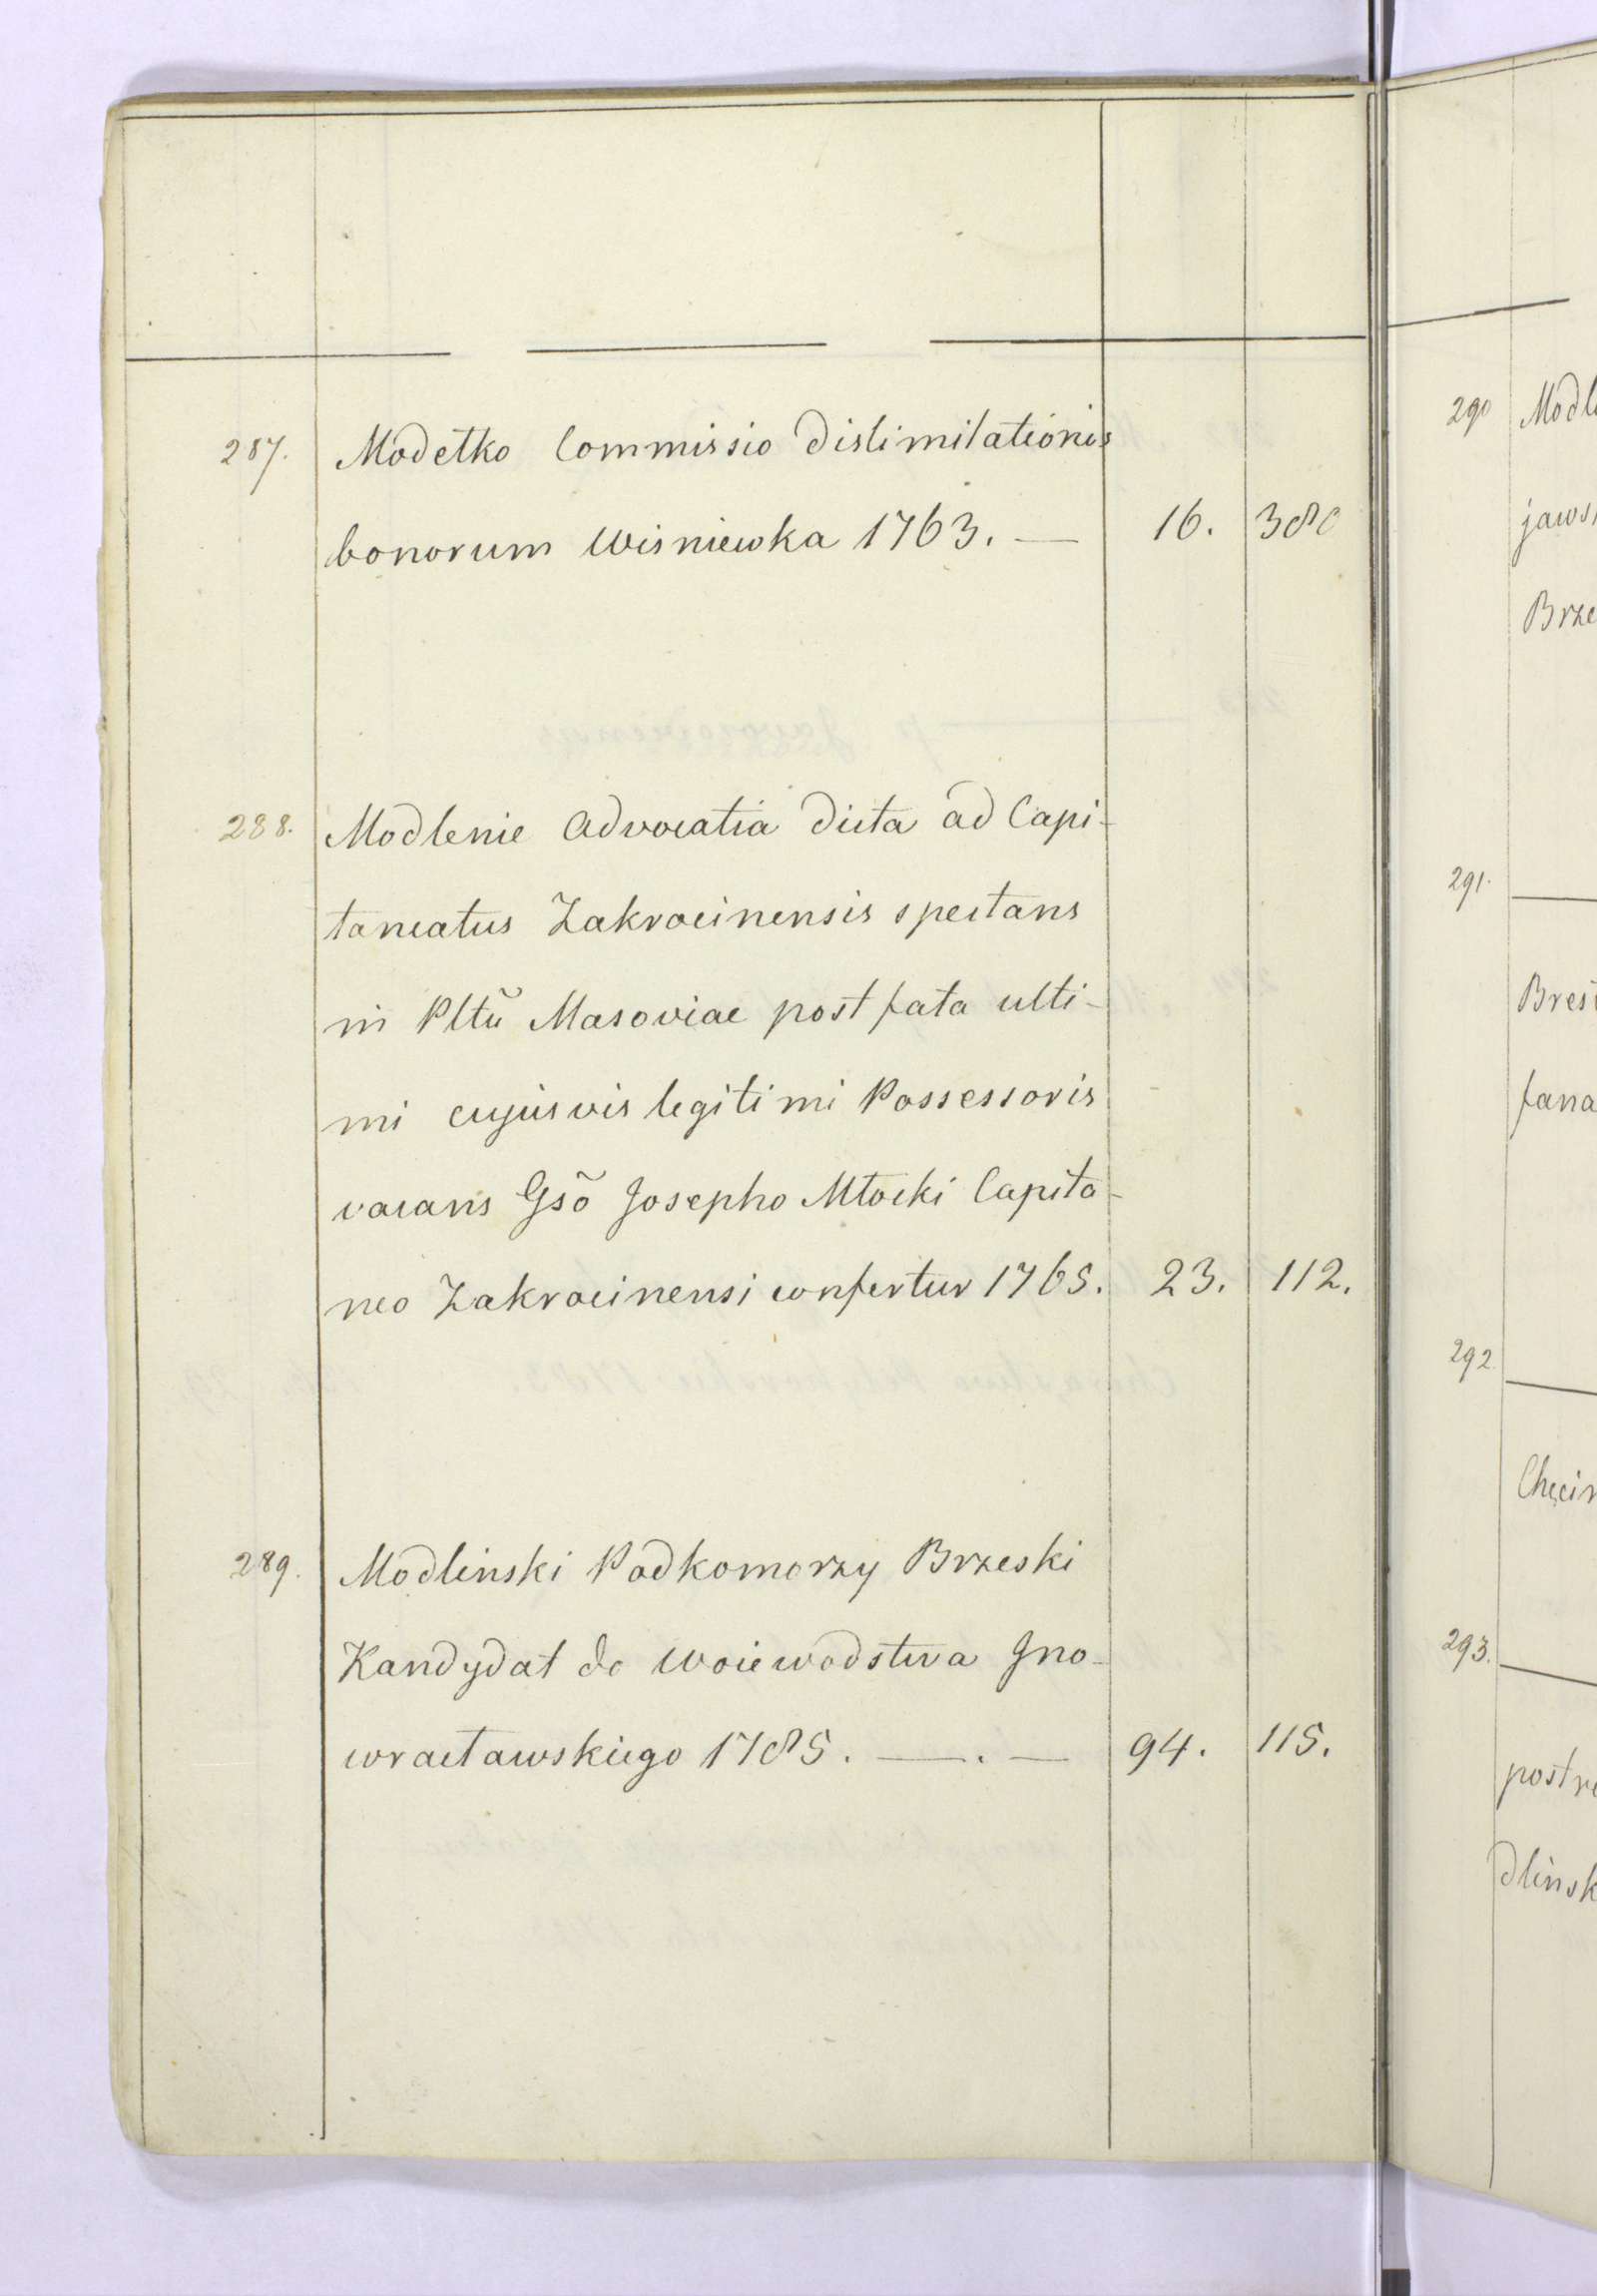 287. Modełko Commissio dislimitationis
bonorum Wisniewka 1763. — 16. 380
288. Modlenie Advocatia dicta ad Capi-
taneatus Zakrocinensis spectans
in Pltũ Masoviae post fata ulti-
mi cujusvis legitimi Possessoris
vacans Gsõ Josepho Młocki Capita-
neo Zakrocinensi confertur 1765. 23. 112.
289. Modlinski Podkomorzy Brzeski
Kandydat do Woiewodstwa Jno-
wracławskiego 1785. —.— 94. 115.
290 Modl
jaws
Brze
291. —
Bres
fana
292 —
Chęcin
293. —
post
dlinsk